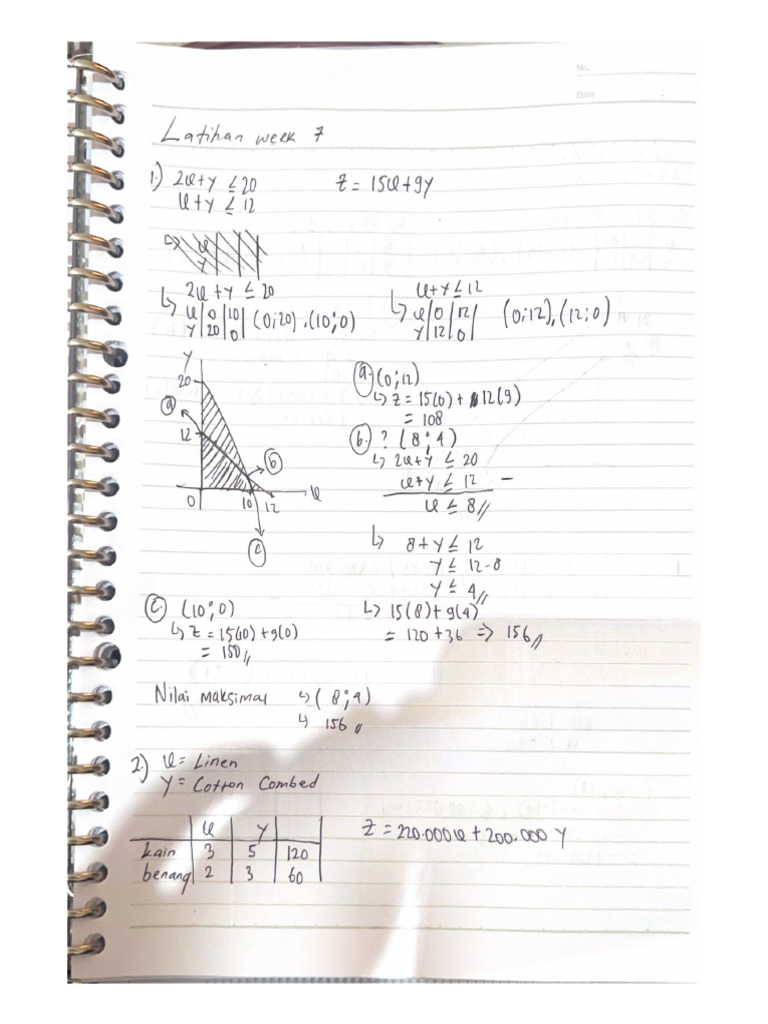 No.
Date
Latihan week 7
1.) 2x+y ≤ 20 z = 15x+9y
x+y ≤ 12
2x+y ≤ 20
x 0 10 (0;20), (10;0)
y 20 0
x+y ≤ 12
x 0 12 (0;12), (12;0)
y 12 0
y
20
12
0 10 12 x
a
b
c
a. (0;12)
↳ z = 15(0) + 12(9)
= 108
b. ? (8;4)
↳ 2x+y ≤ 20
x+y ≤ 12 −
x ≤ 8//
↳ 8+y ≤ 12
y ≤ 12-8
y ≤ 4//
↳ 15(8)+9(4)
= 120+36 => 156//
c. (10;0)
↳ z = 15(10)+9(0)
= 150//
Nilai maksimal ↳ (8;4)
↳ 156//
2.) x = Linen
y = Cotton Combed
x y
kain 3 5 120
benang 2 3 60
z = 220.000x + 200.000 y